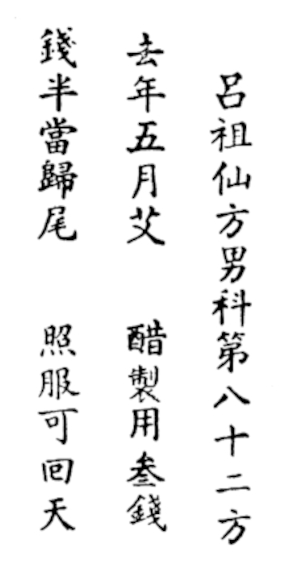 呂祖仙方男科第八十二方
去年五月艾　醋製用叁錢
錢半當歸尾　照服可回天